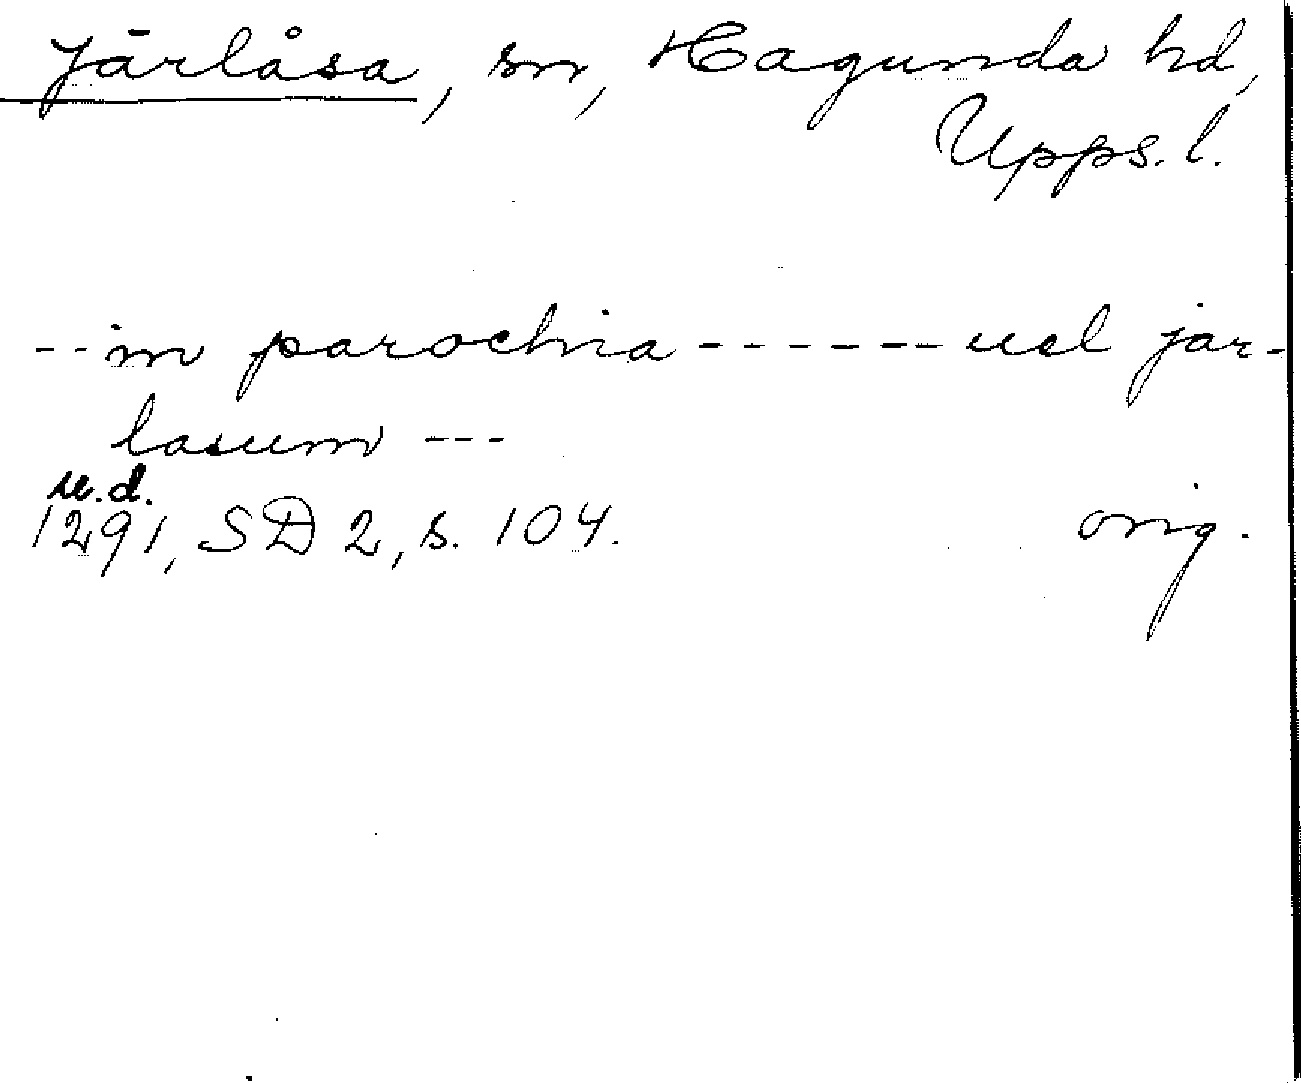 Järlåsa, sn, Hagunda hd,
Upps. l.
-- in parochia ------ uel jar-
lasum ---
u.d.
1291, SD 2, s. 104. orig.